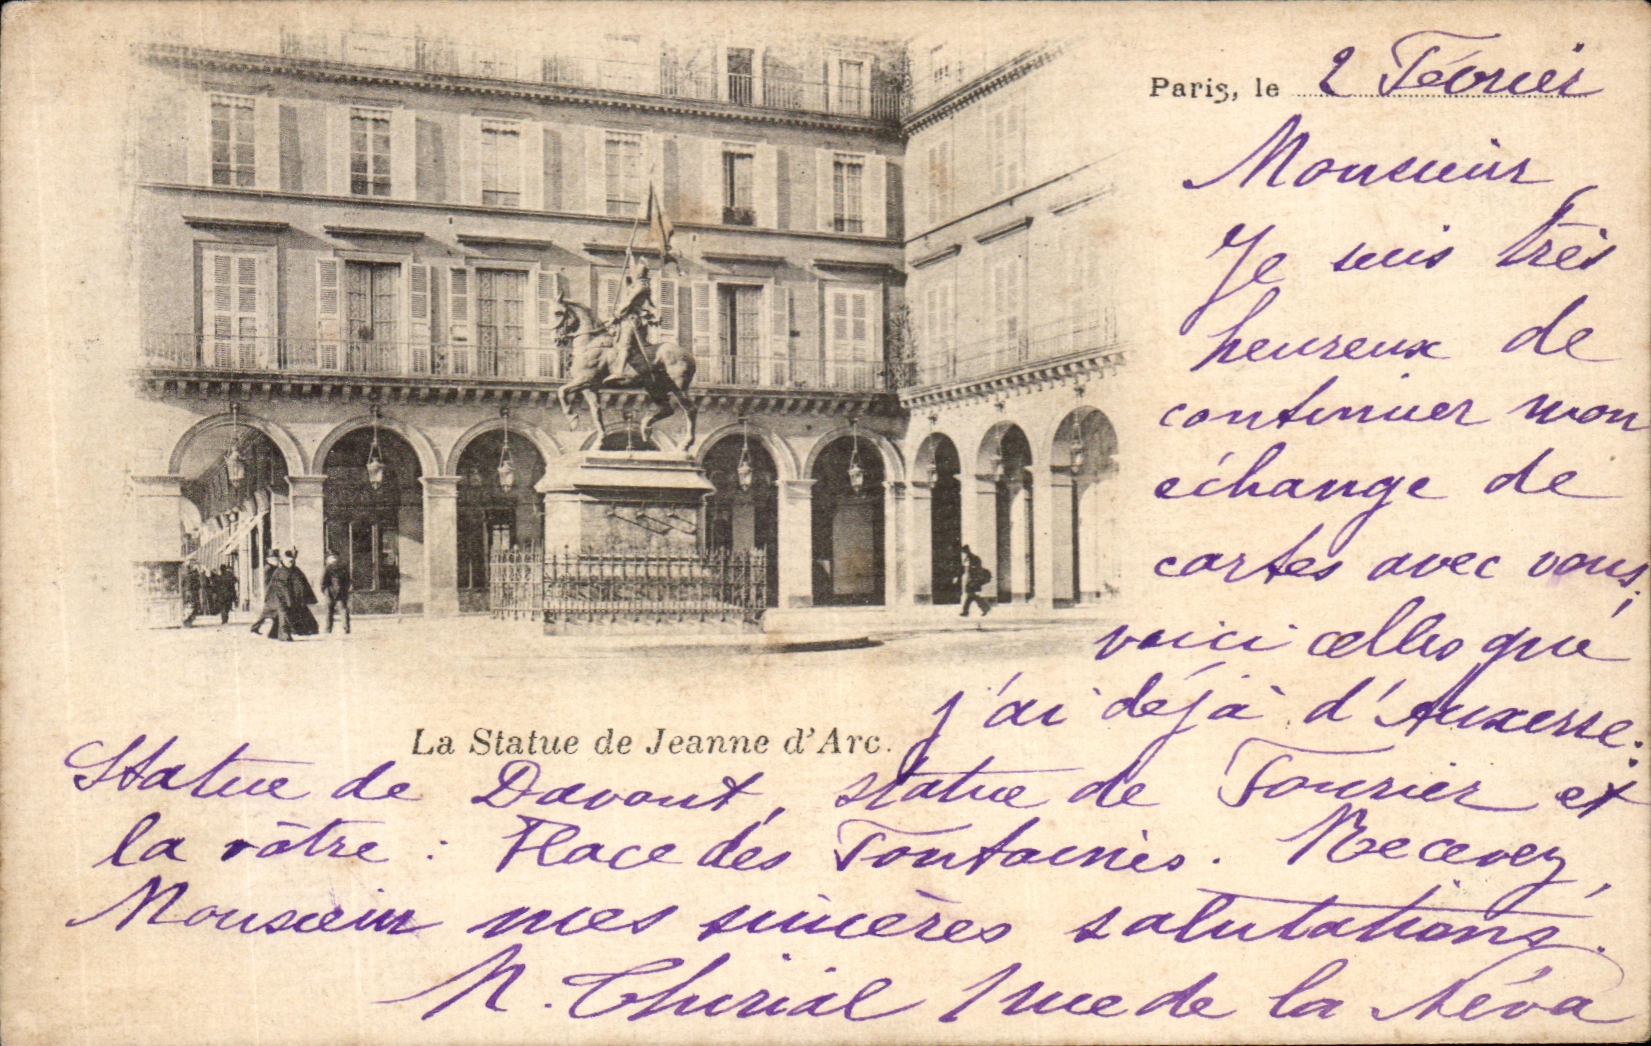 Paris, le 2 Février
Monsieur,
Je suis très
heureux de
continuer mon
échange de
cartes avec vous,
voici celles que
j'ai déjà d'Auxerre:
La Statue de Jeanne d'Arc.
Statue de Davout, statue de Fourier et
la vôtre : Place des Fontaines. Recevez,
Monsieur mes sincères salutations.
N. Thirial 1 rue de la Néva